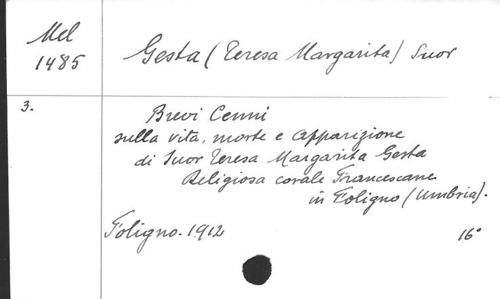 Mel
1485
Gesta (Teresa Margarita) Suor
3.
Brevi Cenni
sulla vita, morte e apparizione
di Suor Teresa Margarita Gesta
Religiosa corale Francescane
in Foligno (Umbria).
Foligno. 1912
16°